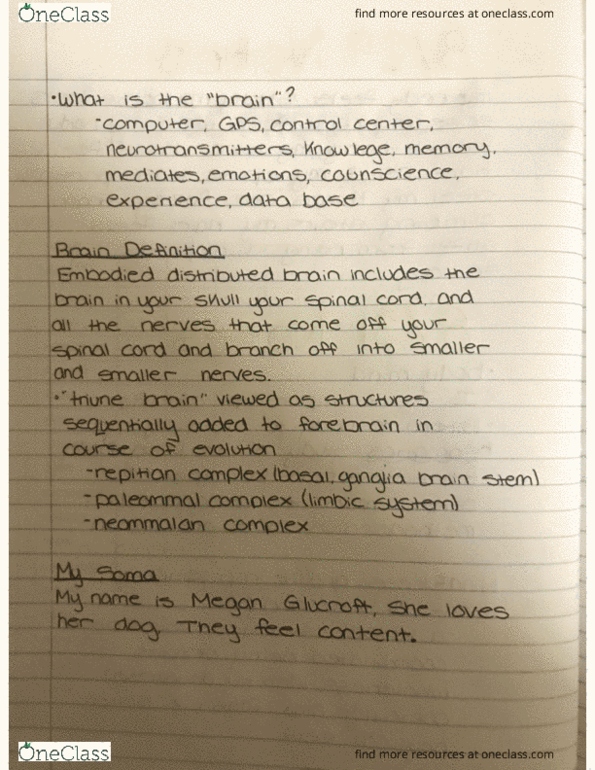 OneClass
find more resources at oneclass.com
•What is the "brain"?
•computer, GPS, control center,
neurotransmitters, Knowlege, memory,
mediates, emotions, counscience,
experience, data base
Brain Definition
Embodied distributed brain includes the
brain in your skull your spinal cord, and
all the nerves that come off your
spinal cord and branch off into smaller
and smaller nerves.
•"triune brain" viewed as structures
sequentially added to forebrain in
course of evolution
-reptilan complex (basal, ganglia brain stem)
-paleommal complex (limbic system)
-neommalan complex
My Soma
My name is Megan Glucroft, She loves
her dog They feel content.
OneClass
find more resources at oneclass.com